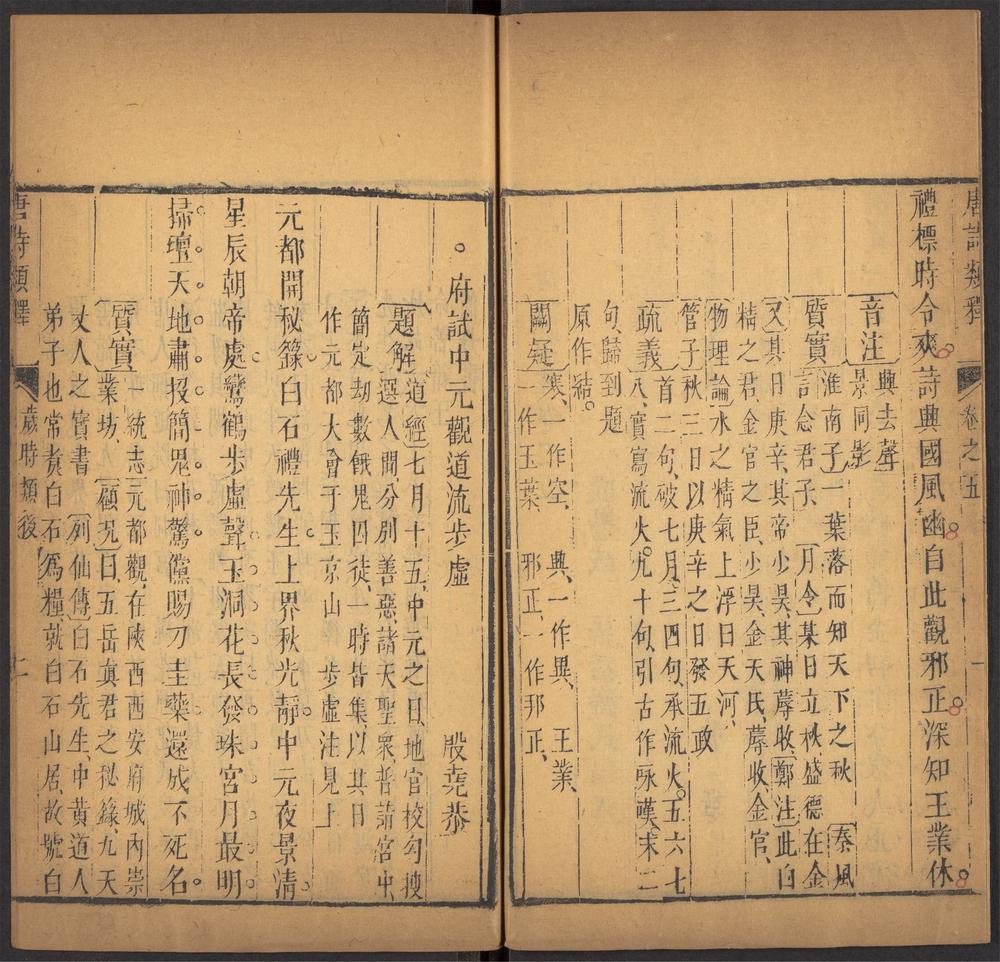 唐詩類釋
卷之五
一
禮標時令爽詩典國風幽自此觀邪正深知王業休
音注
興去聲
景同影
質實
淮南子一葉落而知天下之秋
秦風
言念君子
月令某日立秋盛德在金
又其日庚辛其帝少昊其神蓐收鄭注此白
精之君金官之臣少昊金天氏蓐收金官
物理論水之精氣上浮曰天河
管子秋三日以庚辛之日發五政
疏義
首二句破七月三四句承流火五六七
八實寫流火九十句引古作咏嘆末二
句歸到題
原作結
闕疑
寒一作空
典一作異
王業
一作玉葉
邪正一作邦正
府試中元觀道流步虛
殷堯恭
題解
道經七月十五中元之日地官校勾搜
選人間分別善惡諸天聖衆普詣宮中
簡定劫數餓鬼四徒一時皆集以其日
作元都大會于玉京山
步虛注見上
元都開秘籙白石禮先生上界秋光靜中元夜景清
星辰朝帝處鸞鶴步虛聲玉洞花長發珠宮月最明
掃壇天地肅投簡鬼神驚儻賜刀圭藥還成不死名
質實
一統志元都觀在陝西西安府城內崇
業坊
顧况曰五岳眞君之秘籙九天
丈人之寳書
列仙傳白石先生中黃道人
弟子也常煑白石爲糧就白石山居故號白
唐詩類釋
歲時類後